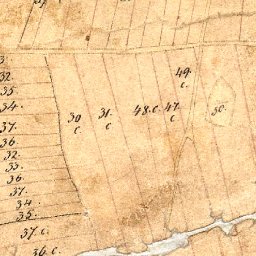 32.
35.
34.
37.
36.
32.
33.
36.
37.
34.
35.
37. c.
36. c.
30
c.
31.
c
48. c.
47.
c
49.
c.
50.